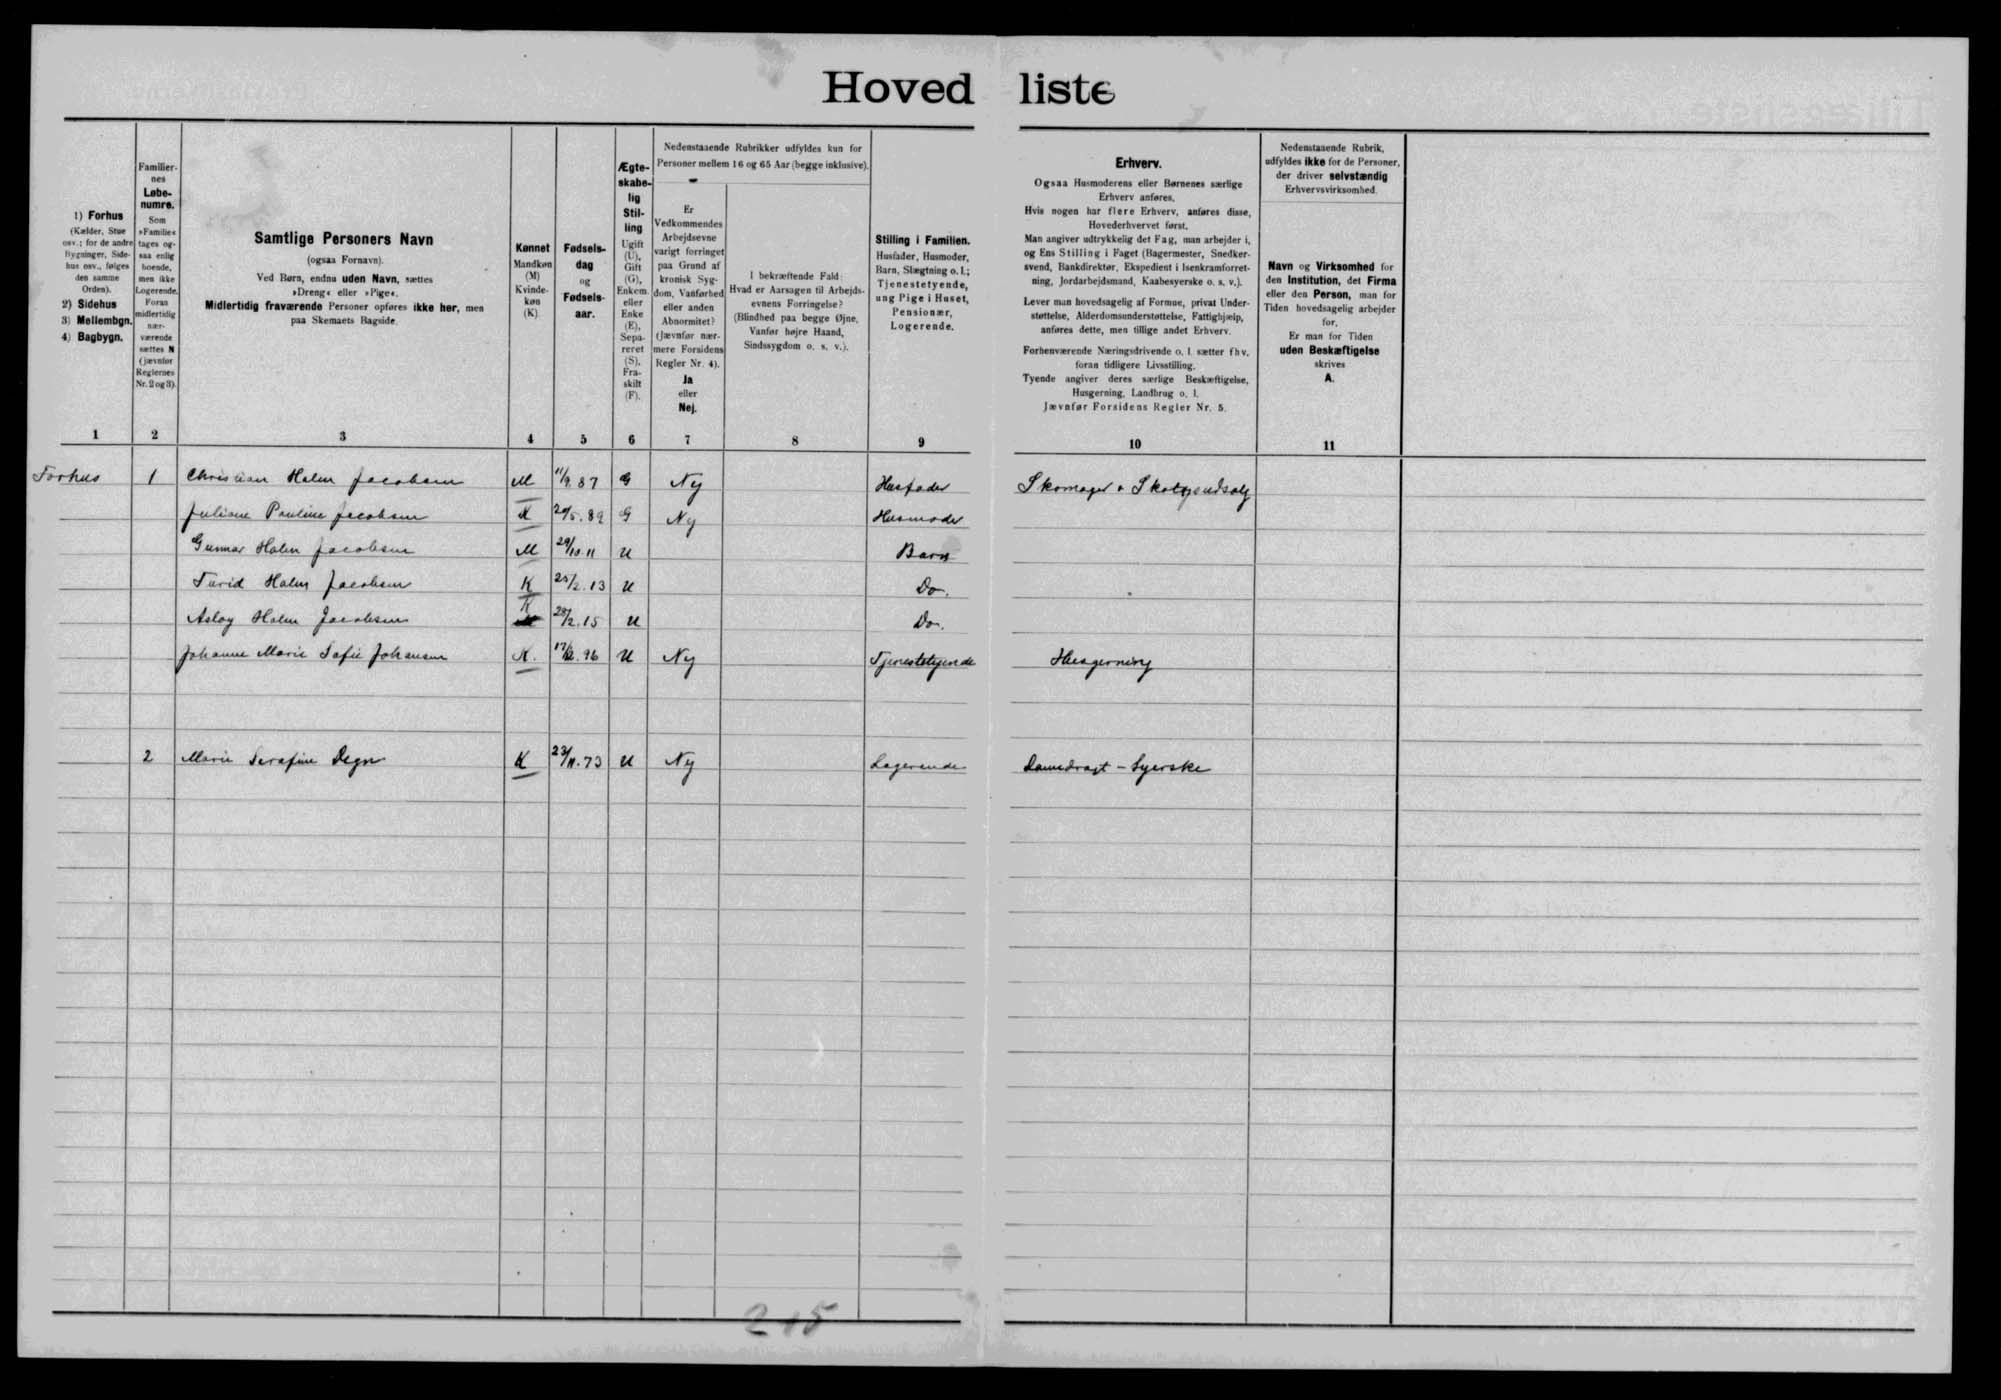 Hovedliste
1) Forhus
(Kælder, Stue
osv.; for de andre
Bygninger, Side-
hus osv., følges
den samme
Orden).
2) Sidehus
3) Mellembgn.
4) Bagbygn.
Familier-
nes
Løbe-
numre.
Som
»Familie«
tages og-
saa enlig
boende,
men ikke
Logerende.
Foran
midlertidig
nær-
værende
sættes N
(jævnfør
Reglernes
Nr. 2 og 3).
Samtlige Personers Navn
(ogsaa Fornavn).
Ved Børn, endnu uden Navn, sættes
»Dreng« eller »Pige«.
Midlertidig fraværende Personer opføres ikke her, men
paa Skemaets Bagside.
Kønnet
Mandkøn
(M)
Kvinde-
køn
(K)
Fødsels-
dag
og
Fødsels-
aar.
Ægte-
skabe-
lig
Stil-
ling
Ugift
(U),
Gift
(G),
Enkem.
eller
Enke
(E),
Sepa-
reret
(S),
Fra-
skilt
(F).
Nedenstaaende Rubrikker udfyldes kun for
Personer mellem 16 og 65 Aar (begge inklusive).
Er
Vedkommendes
Arbejdsevne
varigt forringet
paa Grund af
kronisk Syg-
dom, Vanførhed
eller anden
Abnormitet?
(Jævnfør nær-
mere Forsidens
Regler Nr. 4).
Ja
eller
Nej.
I bekræftende Fald:
Hvad er Aarsagen til Arbejds-
evnens Forringelse?
(Blindhed paa begge Øjne,
Vanfør højre Haand,
Sindssygdom o. s. v.).
Stilling i Familien.
Husfader, Husmoder,
Barn, Slægtning o. l.;
Tjenestetyende,
ung Pige i Huset,
Pensionær,
Logerende.
Erhverv.
Ogsaa Husmoderens eller Børnenes særlige
Erhverv anføres.
Hvis nogen har flere Erhverv, anføres disse,
Hovederhvervet først.
Man angiver udtrykkelig det Fag, man arbejder i,
og Ens Stilling i Faget (Bagermester, Snedker-
svend, Bankdirektør, Ekspedient i Isenkramforret-
ning, Jordarbejdsmand, Kaabesyerske o. s. v.).
Lever man hovedsagelig af Formue, privat Under-
støttelse, Alderdomsunderstøttelse, Fattighjælp,
anføres dette, men tillige andet Erhverv.
Forhenværende Næringsdrivende o. l. sætter fhv.
foran tidligere Livsstilling.
Tyende angiver deres særlige Beskæftigelse,
Husgerning, Landbrug o. l.
Jævnfør Forsidens Regler Nr. 5.
Nedenstaaende Rubrik,
udfyldes ikke for de Personer,
der driver selvstændig
Erhvervsvirksomhed.
Navn og Virksomhed for
den Institution, det Firma
eller den Person, man for
Tiden hovedsagelig arbejder
for.
Er man for Tiden
uden Beskæftigelse
skrives
A.
1 2 3 4 5 6 7 8 9 10 11
Forhus 1 Christian Holm Jacobsen M 11/9 87 G Nej Husfader Skomager & Skotøjsudsalg
Juliane Pauline Jacobsen K 20/5. 89 G Nej Husmoder
Gunnar Holm Jacobsen M 29/10 11 U Barn
Turid Holm Jacobsen K 25/2. 13 U Do.
Aslog Holm Jacobsen K 28/2. 15 U Do.
Johanne Marie Sofie Johansen K. 96 U Nej Tjenestetyende Husgerning
2 Marie Serafine Degn K 23/11. 73 U Nej Logerende Damedragt - Syerske